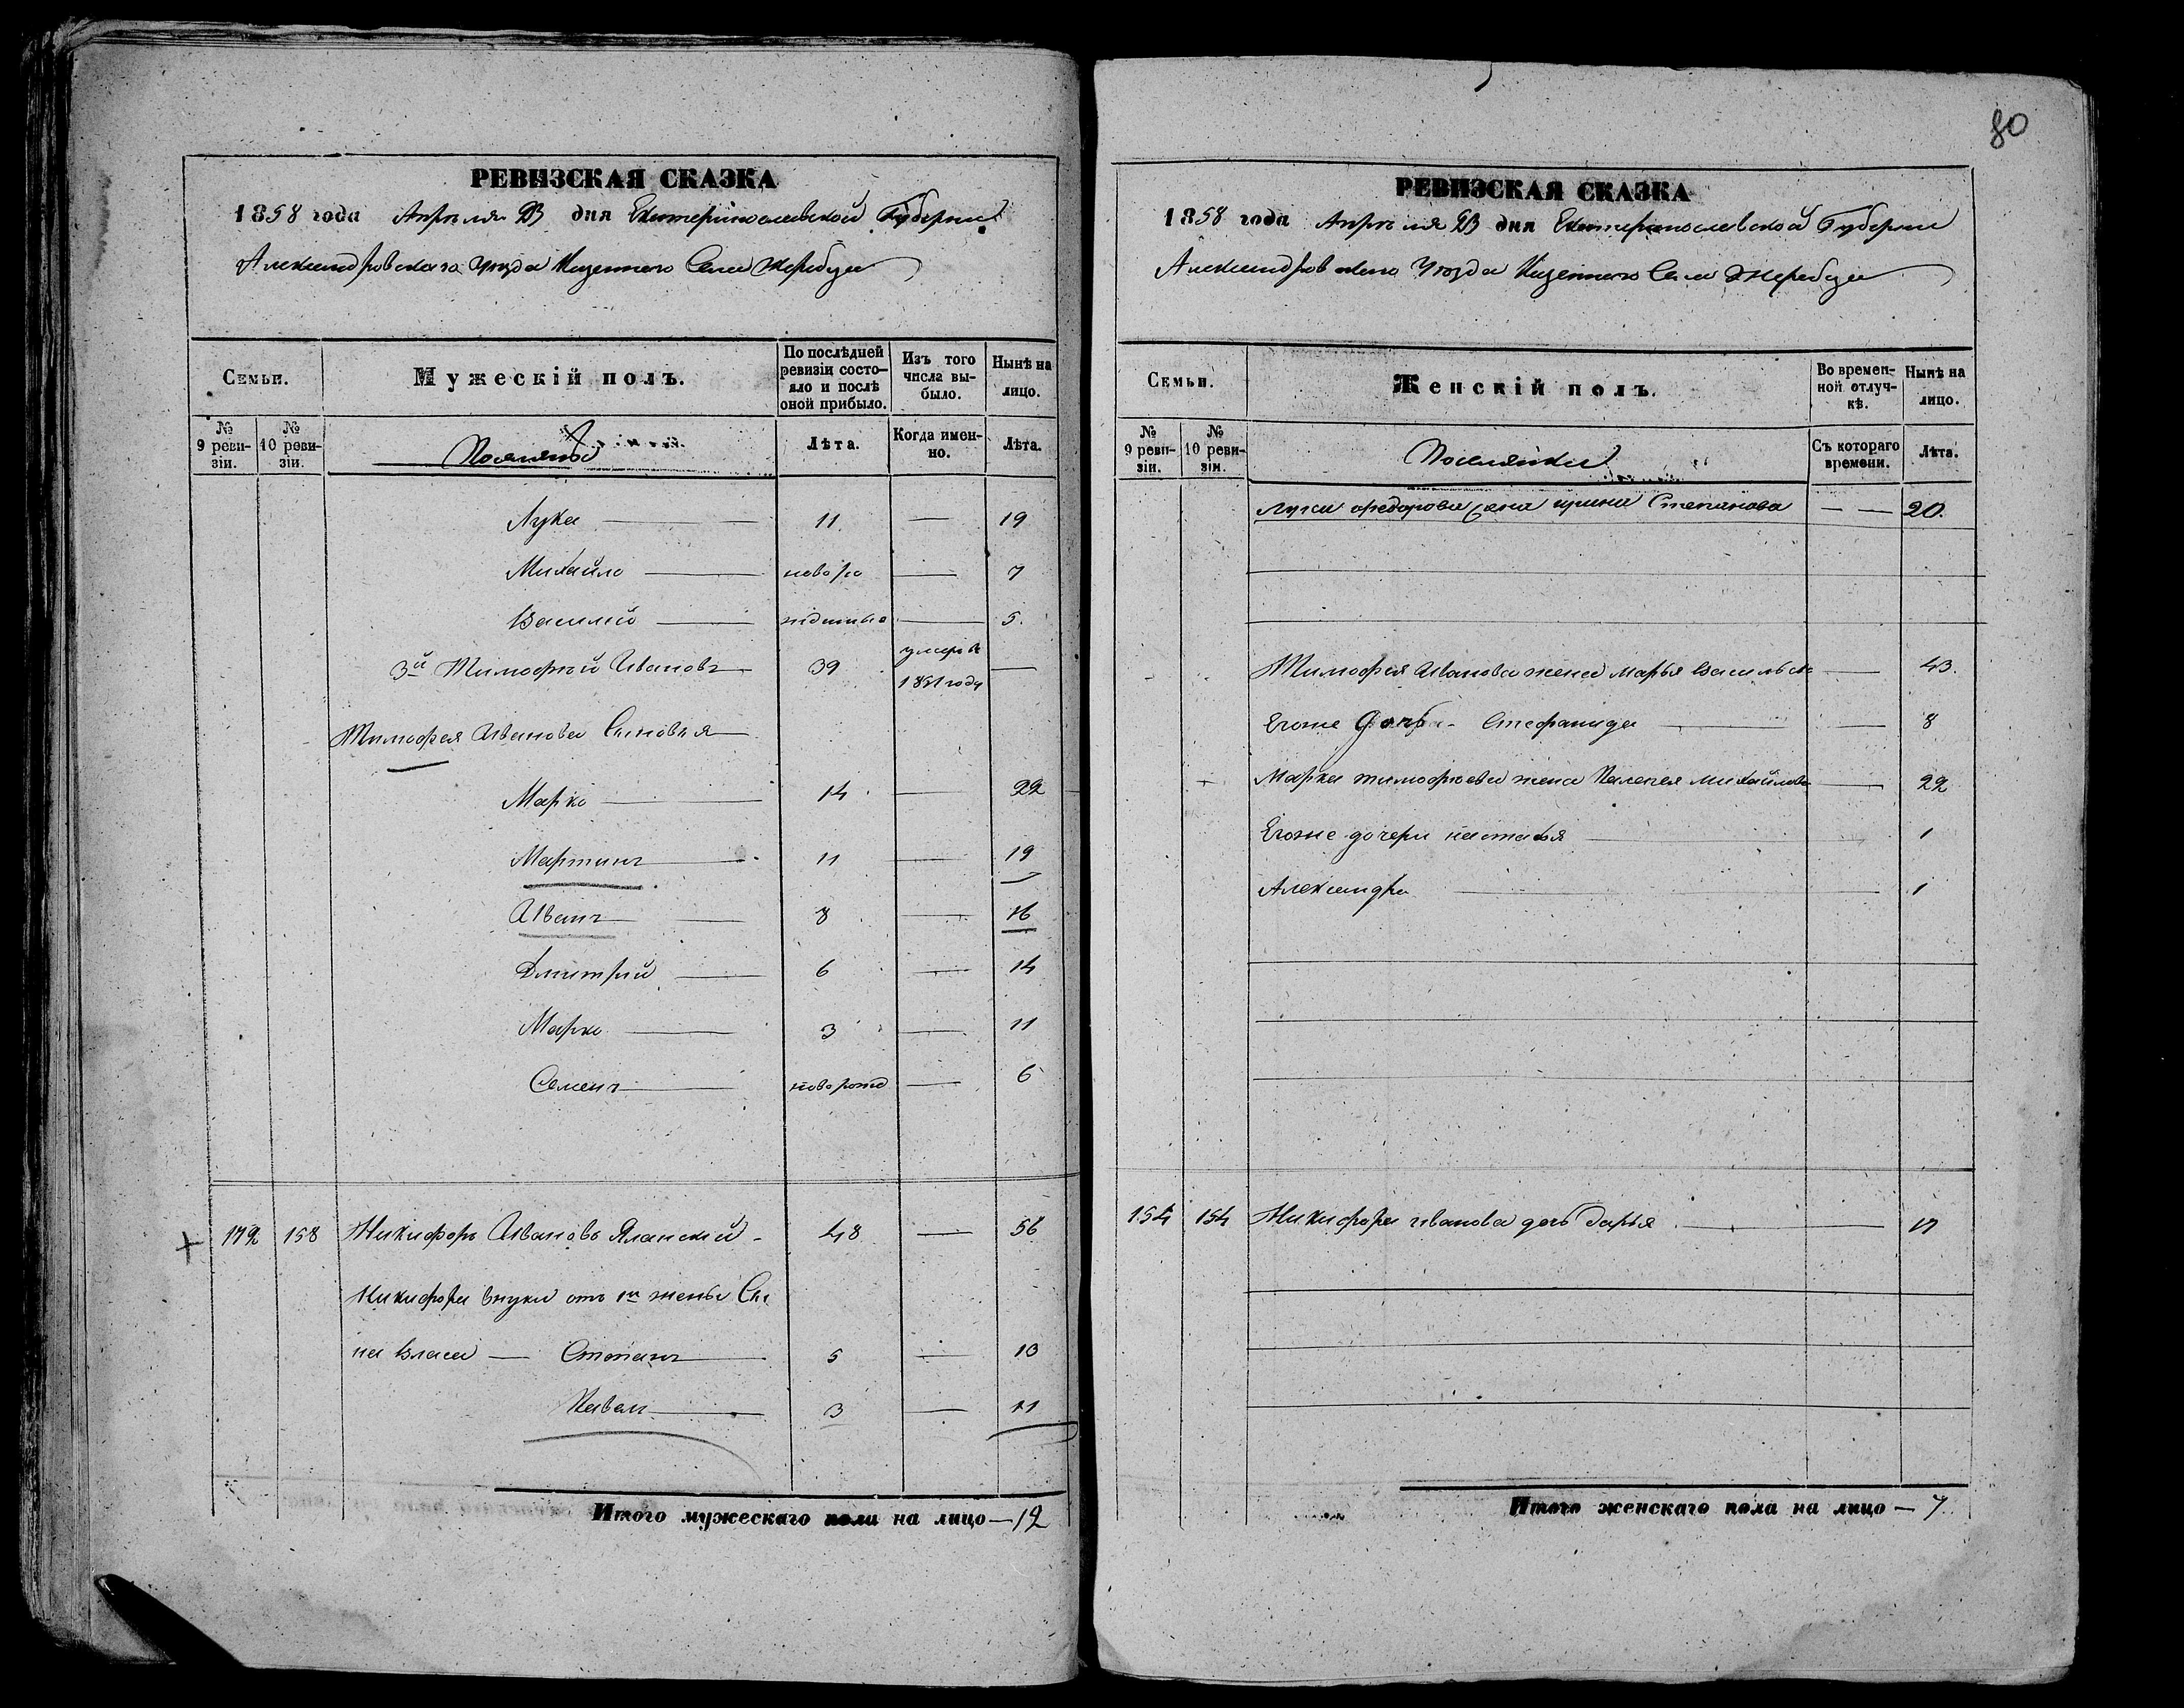 РЕВИЗСКАЯ СКАЗКА
1858 года Апреля 23 дня Екатеринославской Губернии
Александровскаго Уезда Казенного Села Жеребца
Семьи.
Мужескій полъ.
По послѣдней ревизіи состо-
яло и послѣ
оной прибыло.
Изъ того
числа вы-
было.
Нынѣ на
лицо.
№
9 реви-
зіи.
№
10 реви-
зіи.
Поселяне
Лѣта.
Когда имен-
но.
Лѣта.
Лука 11 — 19
Михайло новоро — 7
Василий ждены — 5.
3й Тимофей Ивановъ 39 умеръ в 1851 году —
Тимофея Иванова Сыновья
Марко 14 — 22
Мартинъ 11 — 19
Иванъ 8 — 16
Дмитрий 6 — 14
Марко 3 — 11
Семенъ новорожд — 6
179 158 Никифоръ Ивановъ Яланский 48 — 56
Никифора внуки отъ 1й жены Сы
на Власа — Степанъ 5 — 13
Павелъ 3 — 11
Итого мужескаго пола на лицо — 12
80
РЕВИЗСКАЯ СКАЗКА
1858 года Апреля 23 дня Екатеринославской Губернии
Александровскаго Уезда Казенного Села Жеребца
Семьи.
Женскій полъ.
Во времен-
ной отлуч-
кѣ.
Нынѣ на
лицо.
№
9 реви-
зіи.
№
10 реви-
зіи.
Поселянки
Съ котораго
времени.
Лѣта.
Луки Федорова жена ирина Степанова — — 20.
Тимофея Иванова жена марья Васильева — 43.
Егоже дочь Стефанида — 8
Марка тимофеева жена Пелагея михайлова — 22
Егоже дочери настасья — 1
Александра — 1
154 154 Никифора иванова дочь дарья — 17
Итого женскаго пола на лицо — 7